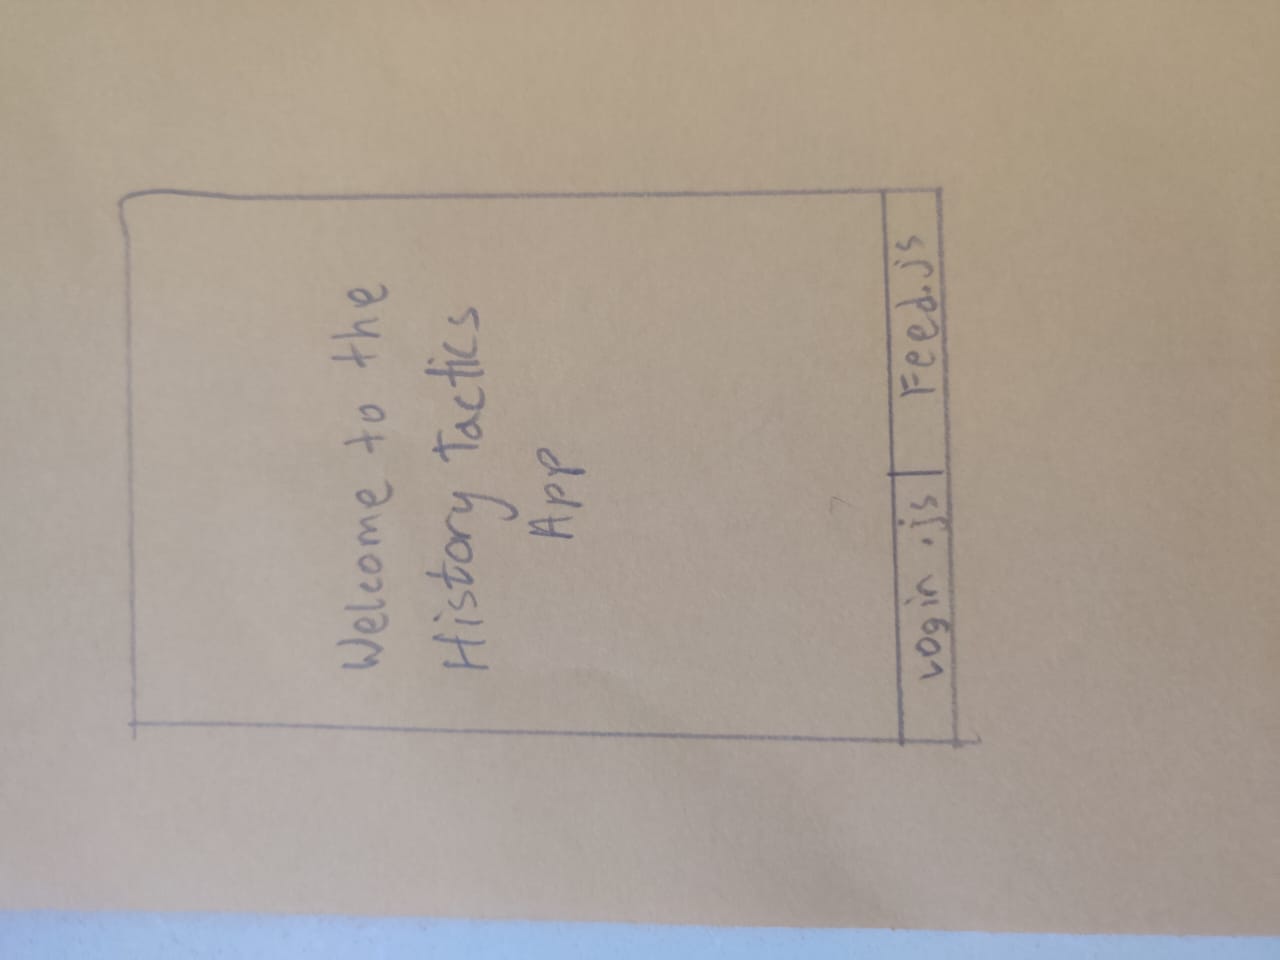 Welcome to the
History Tactics
App
Login .js
Feed.js